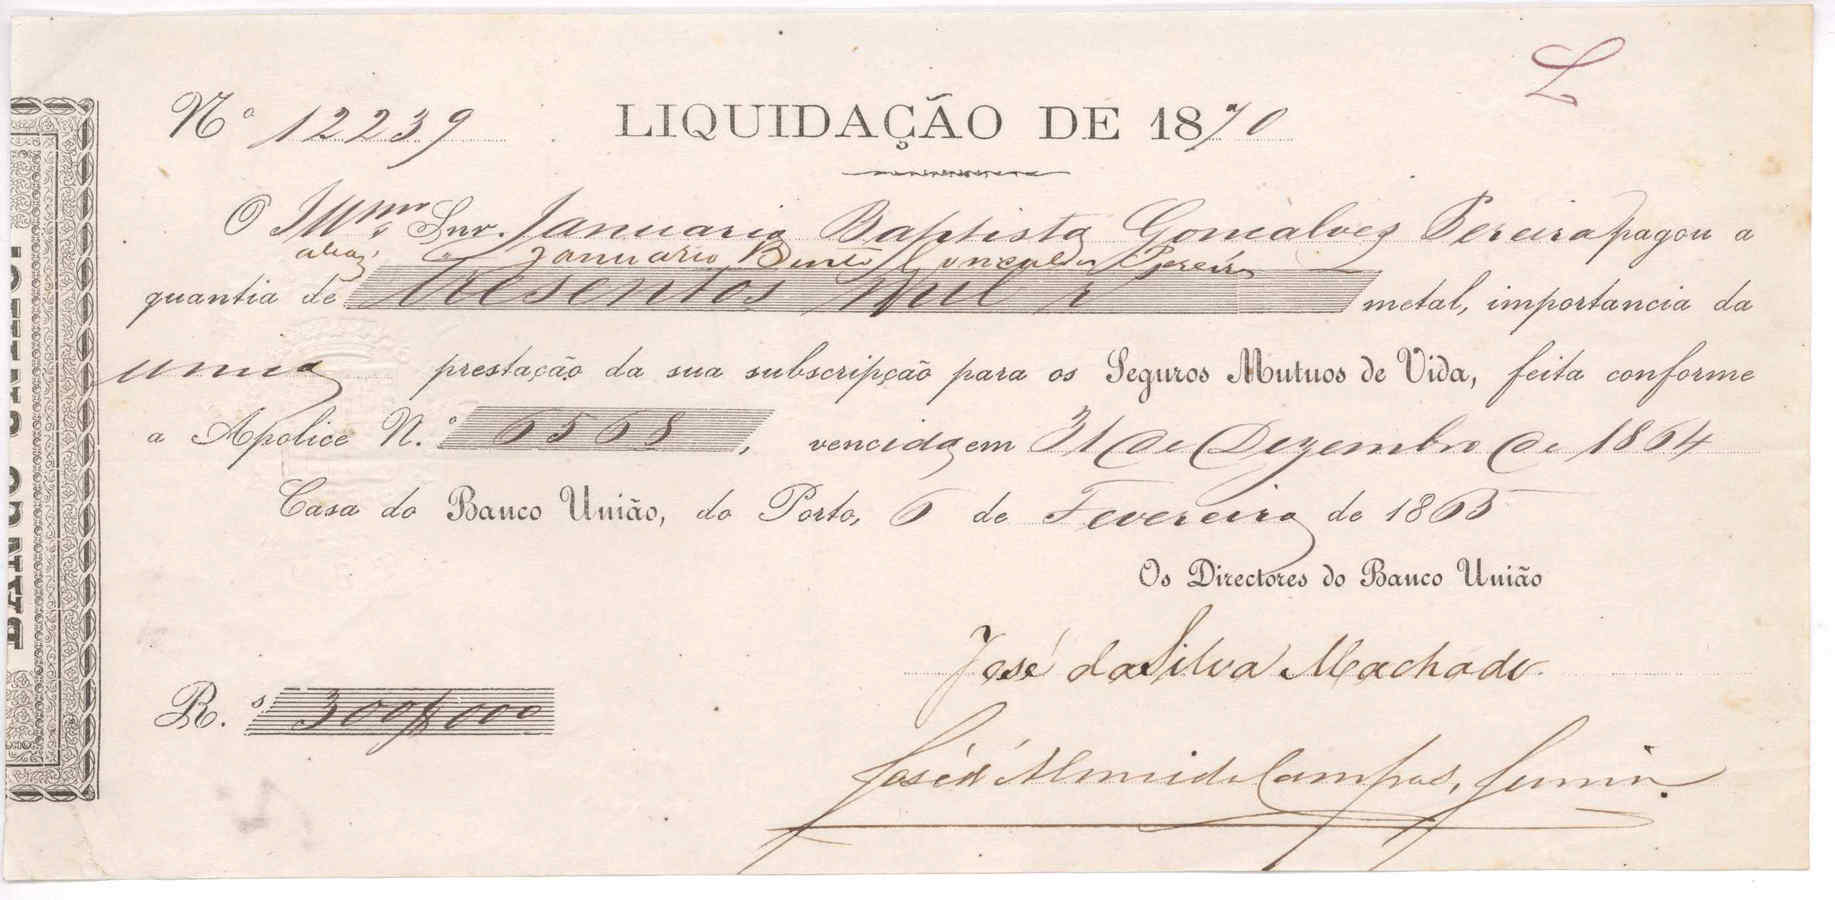 L
Nº 12239 LIQUIDAÇÃO DE 1870
O Illmo Snr. Januario Baptista Goncalves Pereira pagou a
aliaz Januario Bento Goncalves Pereira
quantia de tresentos mil rs metal, importancia da
unica prestação da sua subscripção para os Seguros Mutuos de Vida, feita conforme
a Apolice N.º 6568, vencida em 31 de Dezembro de 1864
Casa do Banco União, do Porto, 6 de Fevereiro de 1865
Os Directores do Banco União
José da Silva Machado
R.s 300$000
José d'Almeida Campos, Junior.
BANCO UNIÃO.